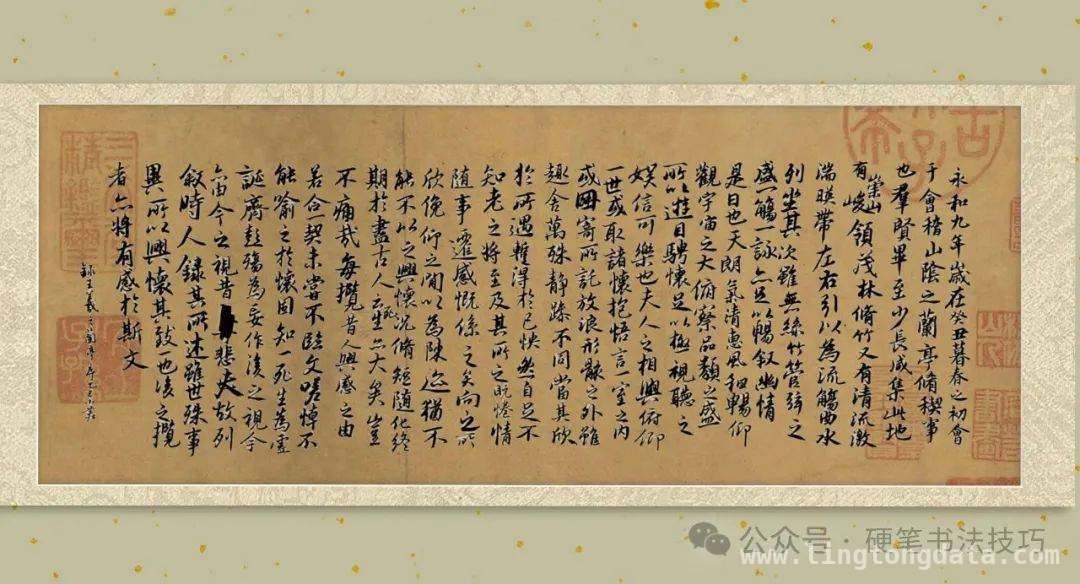 永和九年歲在癸丑暮春之初會
于會稽山陰之蘭亭脩稧事
也羣賢畢至少長咸集此地
有崇山峻領茂林脩竹又有清流激
湍暎帶左右引以為流觴曲水
列坐其次雖無絲竹管弦之
盛一觴一詠亦足以暢叙幽情
是日也天朗氣清惠風和暢仰
觀宇宙之大俯察品類之盛
所以遊目騁懷足以極視聽之
娛信可樂也夫人之相與俯仰
一世或取諸懷抱悟言一室之內
或因寄所託放浪形骸之外雖
趣舍萬殊静躁不同當其欣
於所遇暫得於己怏然自足不
知老之將至及其所之既惓情
隨事遷感慨係之矣向之所
欣俛仰之閒以為陳迹猶不
能不以之興懷況脩短隨化終
期於盡古人云死生亦大矣豈
不痛哉每攬昔人興感之由
若合一契未嘗不臨文嗟悼不
能喻之於懷固知一死生為虛
誕齊彭殤為妄作後之視今
亦由今之視昔悲夫故列
叙時人錄其所述雖世殊事
異所以興懷其致一也後之攬
者亦將有感於斯文
録王羲之蘭亭序
公众号·硬笔书法技巧
www.lingtongdata.com